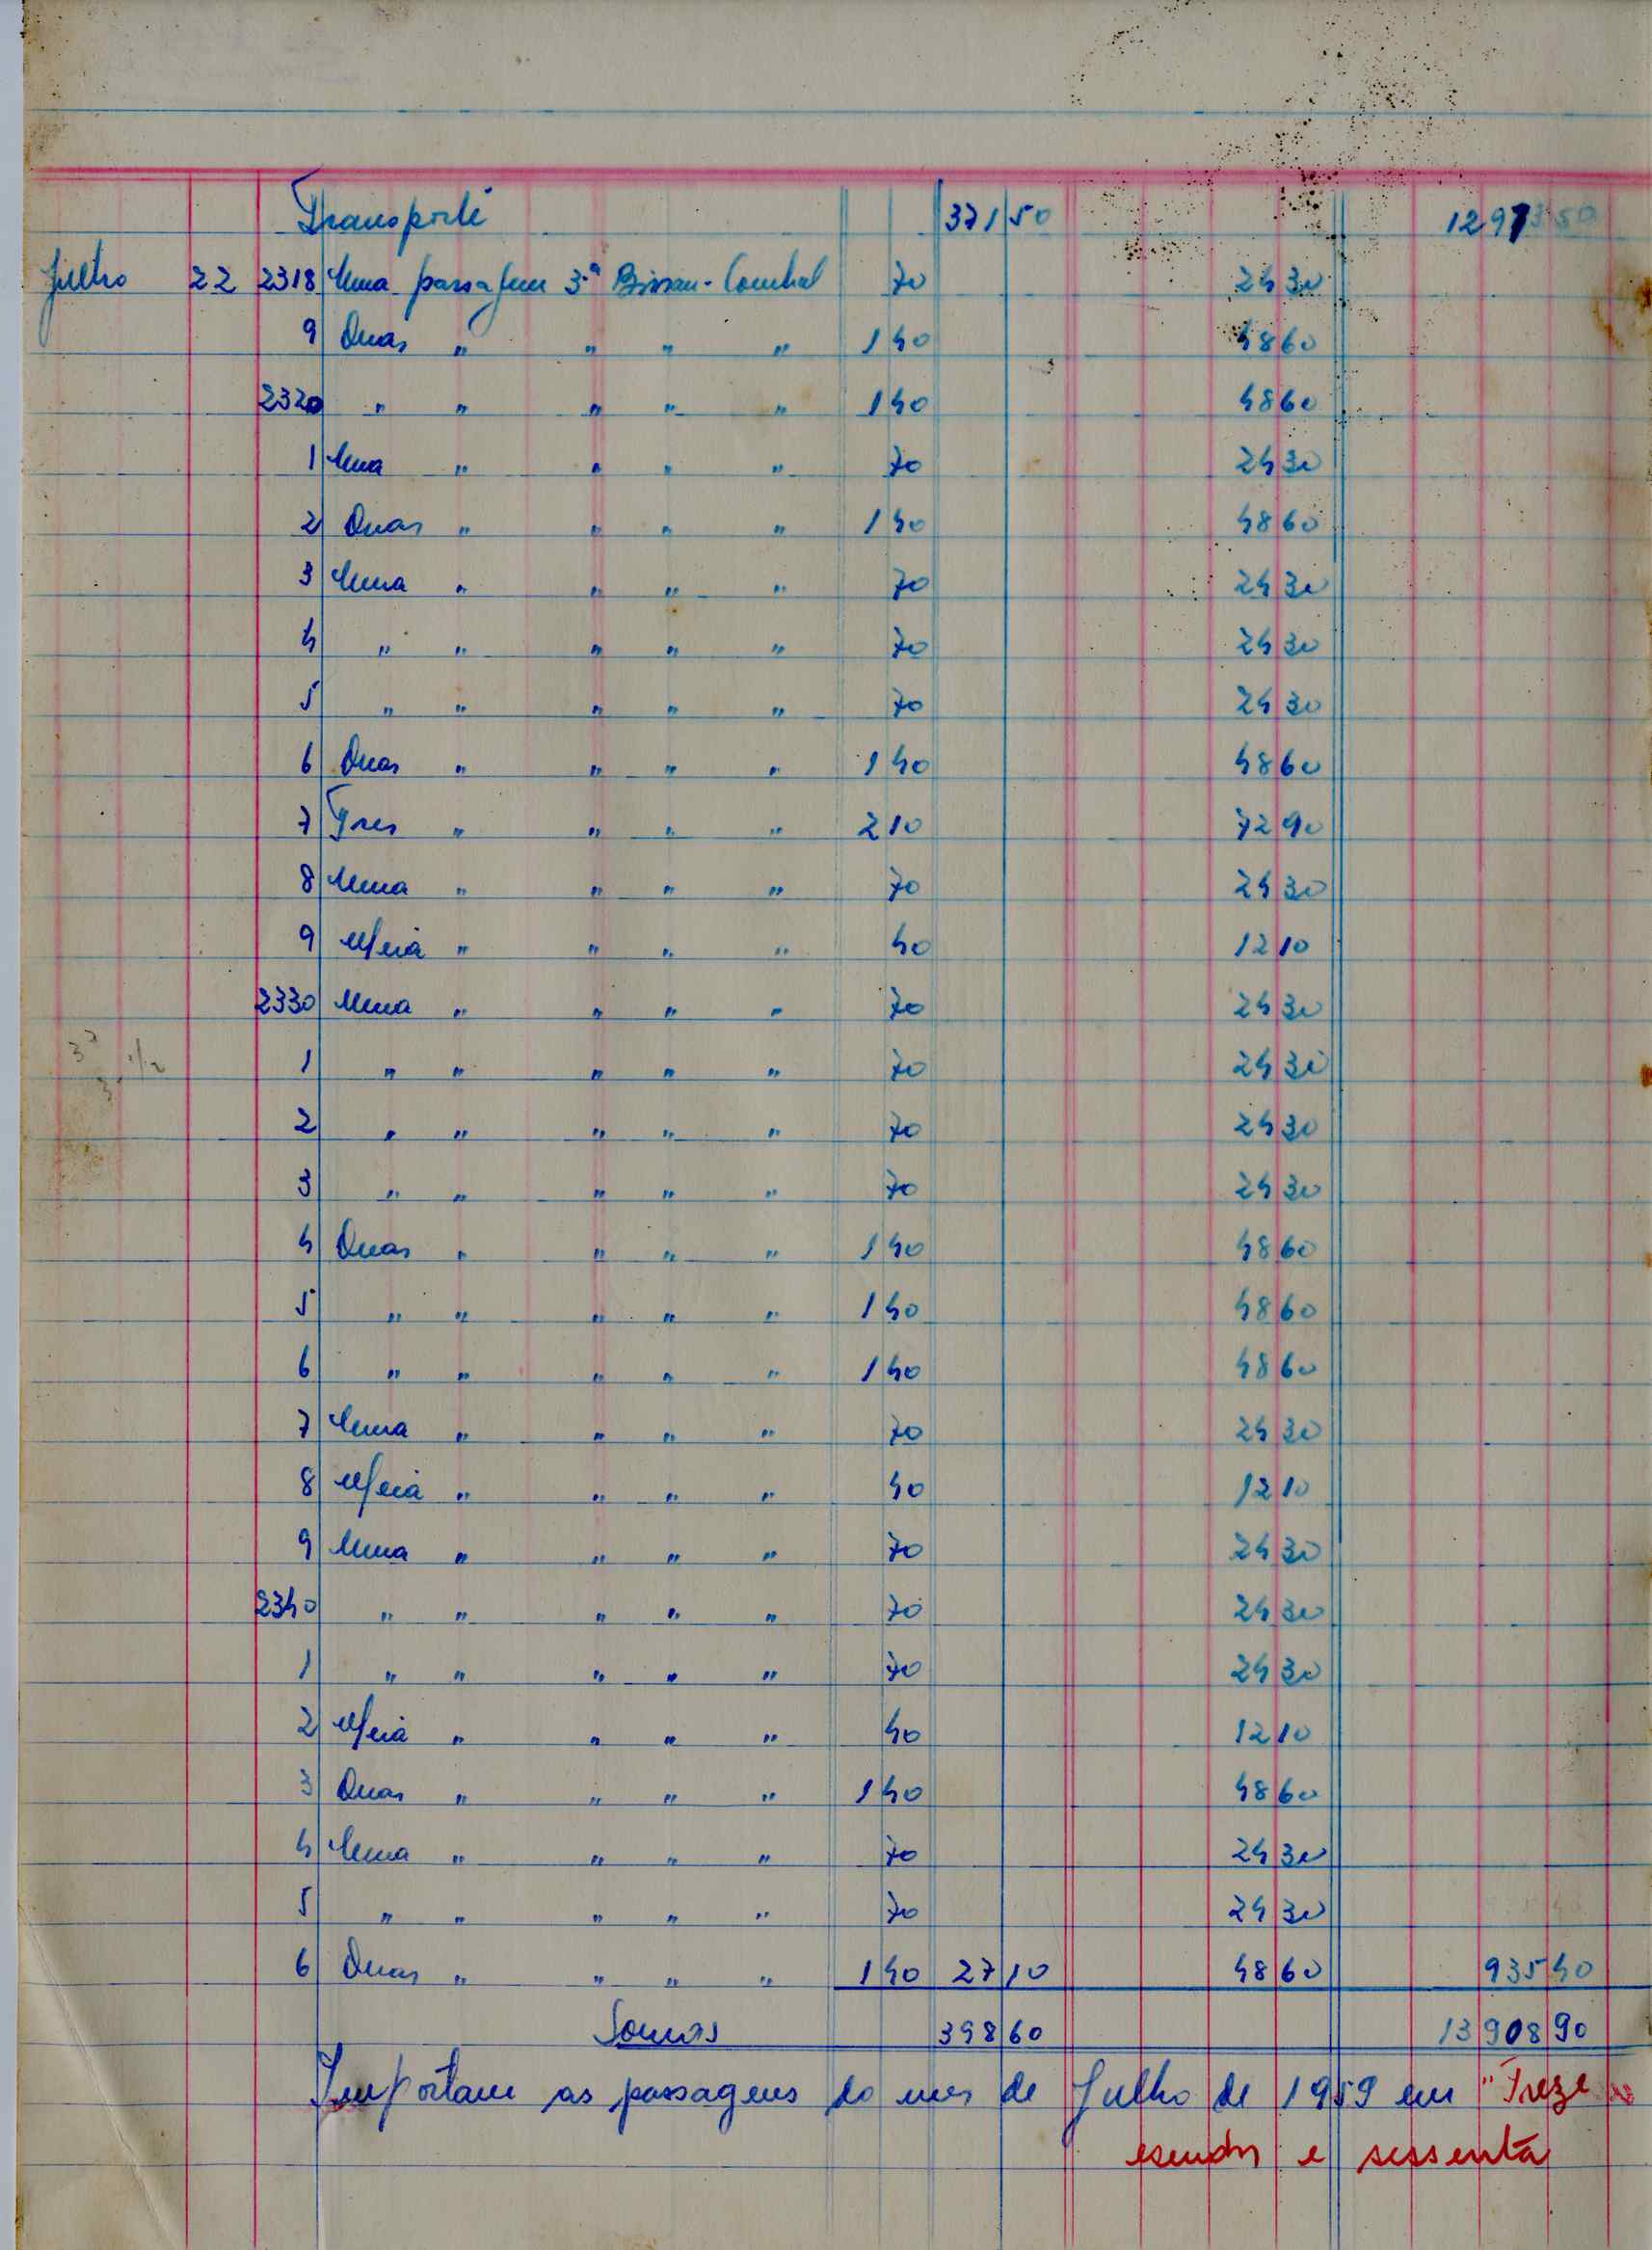 Transporte 371 50 12973 50
Julho 22 2318 Uma passagem 3.ª Bissau-Cumbal 70 24 30
9 Duas " " " " 1 40 48 60
2320 " " " " " 1 40 48 60
1 Uma " " " " 70 24 30
2 Duas " " " " 1 40 48 60
3 Uma " " " " 70 24 30
4 " " " " " 70 24 30
5 " " " " " 70 24 30
6 Duas " " " " 1 40 48 60
7 Tres " " " " 2 10 72 90
8 Uma " " " " 70 24 30
9 Meia " " " " 40 12 10
2330 Uma " " " " 70 24 30
1 " " " " " 70 24 30
2 " " " " " 70 24 30
3 " " " " " 70 24 30
4 Duas " " " " 1 40 48 60
5 " " " " " 1 40 48 60
6 " " " " " 1 40 48 60
7 Uma " " " " 70 24 30
8 Meia " " " " 40 12 10
9 Uma " " " " 70 24 30
2340 " " " " " 70 24 30
1 " " " " " 70 24 30
2 Meia " " " " 40 12 10
3 Duas " " " " 1 40 48 60
4 Uma " " " " 70 24 30
5 " " " " " 70 24 30
6 Duas " " " " 1 40 27 10 48 60 935 40
Somas 398 60 13908 90
Importam as passagens do mes de Julho de 1959 em "Treze
escudos e sessenta